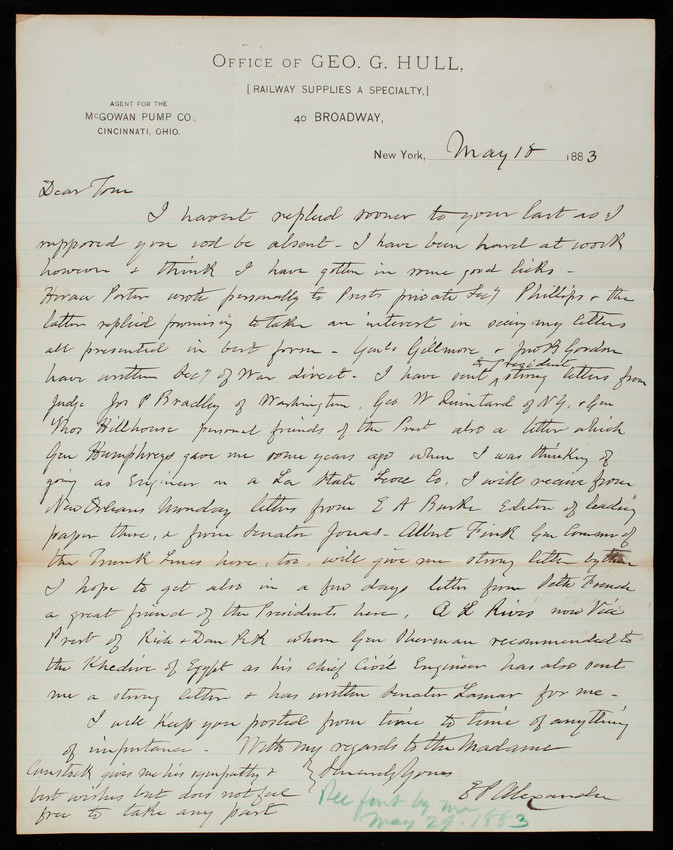 OFFICE OF GEO. G. HULL,
[RAILWAY SUPPLIES A SPECIALTY,]
AGENT FOR THE
McGOWAN PUMP CO.,
CINCINNATI, OHIO.
40 BROADWAY,
New York, May 18 1883
Dear Tom
I havent replied sooner to your last as I
supposed you wod be absent - I have been hard at work
however & think I have gotten in some good licks -
Horace Porter wrote personally to Prests private Secy Phillips & the
latter replied promising to take an interest in seeing my letters
all presented in best form - Genls Gillmore & Jno B Gordon
have written Secy of War direct - I have sent to President strong letters from
Judge Jos P Bradley of Washington, Geo W Quintard of N.Y. & Gen
Thos Hillhouse personal friends of the Prest also a letter which
Gen Humphreys gave me some years ago when I was thinking of
going as Engineer on a La State Levee Co. I will receive from
New Orleans Monday letters from E A Burke Editor of leading
paper there, & from Senator Jonas - Albert Fink Gen Commr of
the Trunk Lines here, too, will give me strong letter by then
I hope to get also in a few days letter from Seth French
a great friend of the Presidents here. A L Rives now Vice
Prest of Rich & Dan RR whom Gen Sherman recommended to
the Khedive of Egypt as his chief Civil Engineer has also sent
me a strong letter & has written Senator Lamar for me -
I will keep you posted from time to time of anything
of importance - With my regards to the Madame
Sincerely Yours
E P Alexander
Comstock gives me his sympathy &
best wishes but does not feel
free to take any part
Rec by me
May 29. 1883